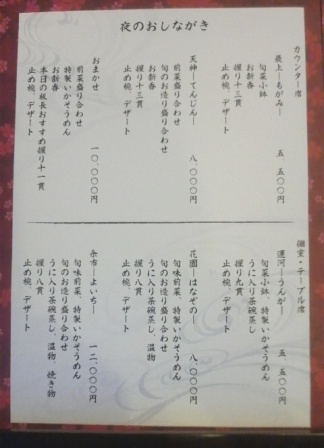 夜のおしながき
カウンター席
最上―もがみ―　五、五〇〇円
旬菜小鉢
お新香
握り十三貫
止め椀、デザート
天神―てんじん―　八、〇〇〇円
前菜盛り合わせ
旬のお造り盛り合わせ
お新香
握り十三貫
止め椀、デザート
おまかせ　一〇、〇〇〇円
前菜盛り合わせ
特製いかそうめん
お新香
本日の板長おすすめ握り十一貫
止め椀、デザート
個室・テーブル席
運河―うんが―　五、五〇〇円
旬菜小鉢、特製いかそうめん
うに入り茶碗蒸し
握り九貫
止め椀、デザート
花園―はなぞの―　八、〇〇〇円
旬味前菜、特製いかそうめん
旬のお造り盛り合わせ
うに入り茶碗蒸し、温物
握り八貫
止め椀、デザート
余市―よいち―　一二、〇〇〇円
旬味前菜、特製いかそうめん
旬のお造り盛り合わせ
うに入り茶碗蒸し、温物　焼き物
握り八貫
止め椀、デザート